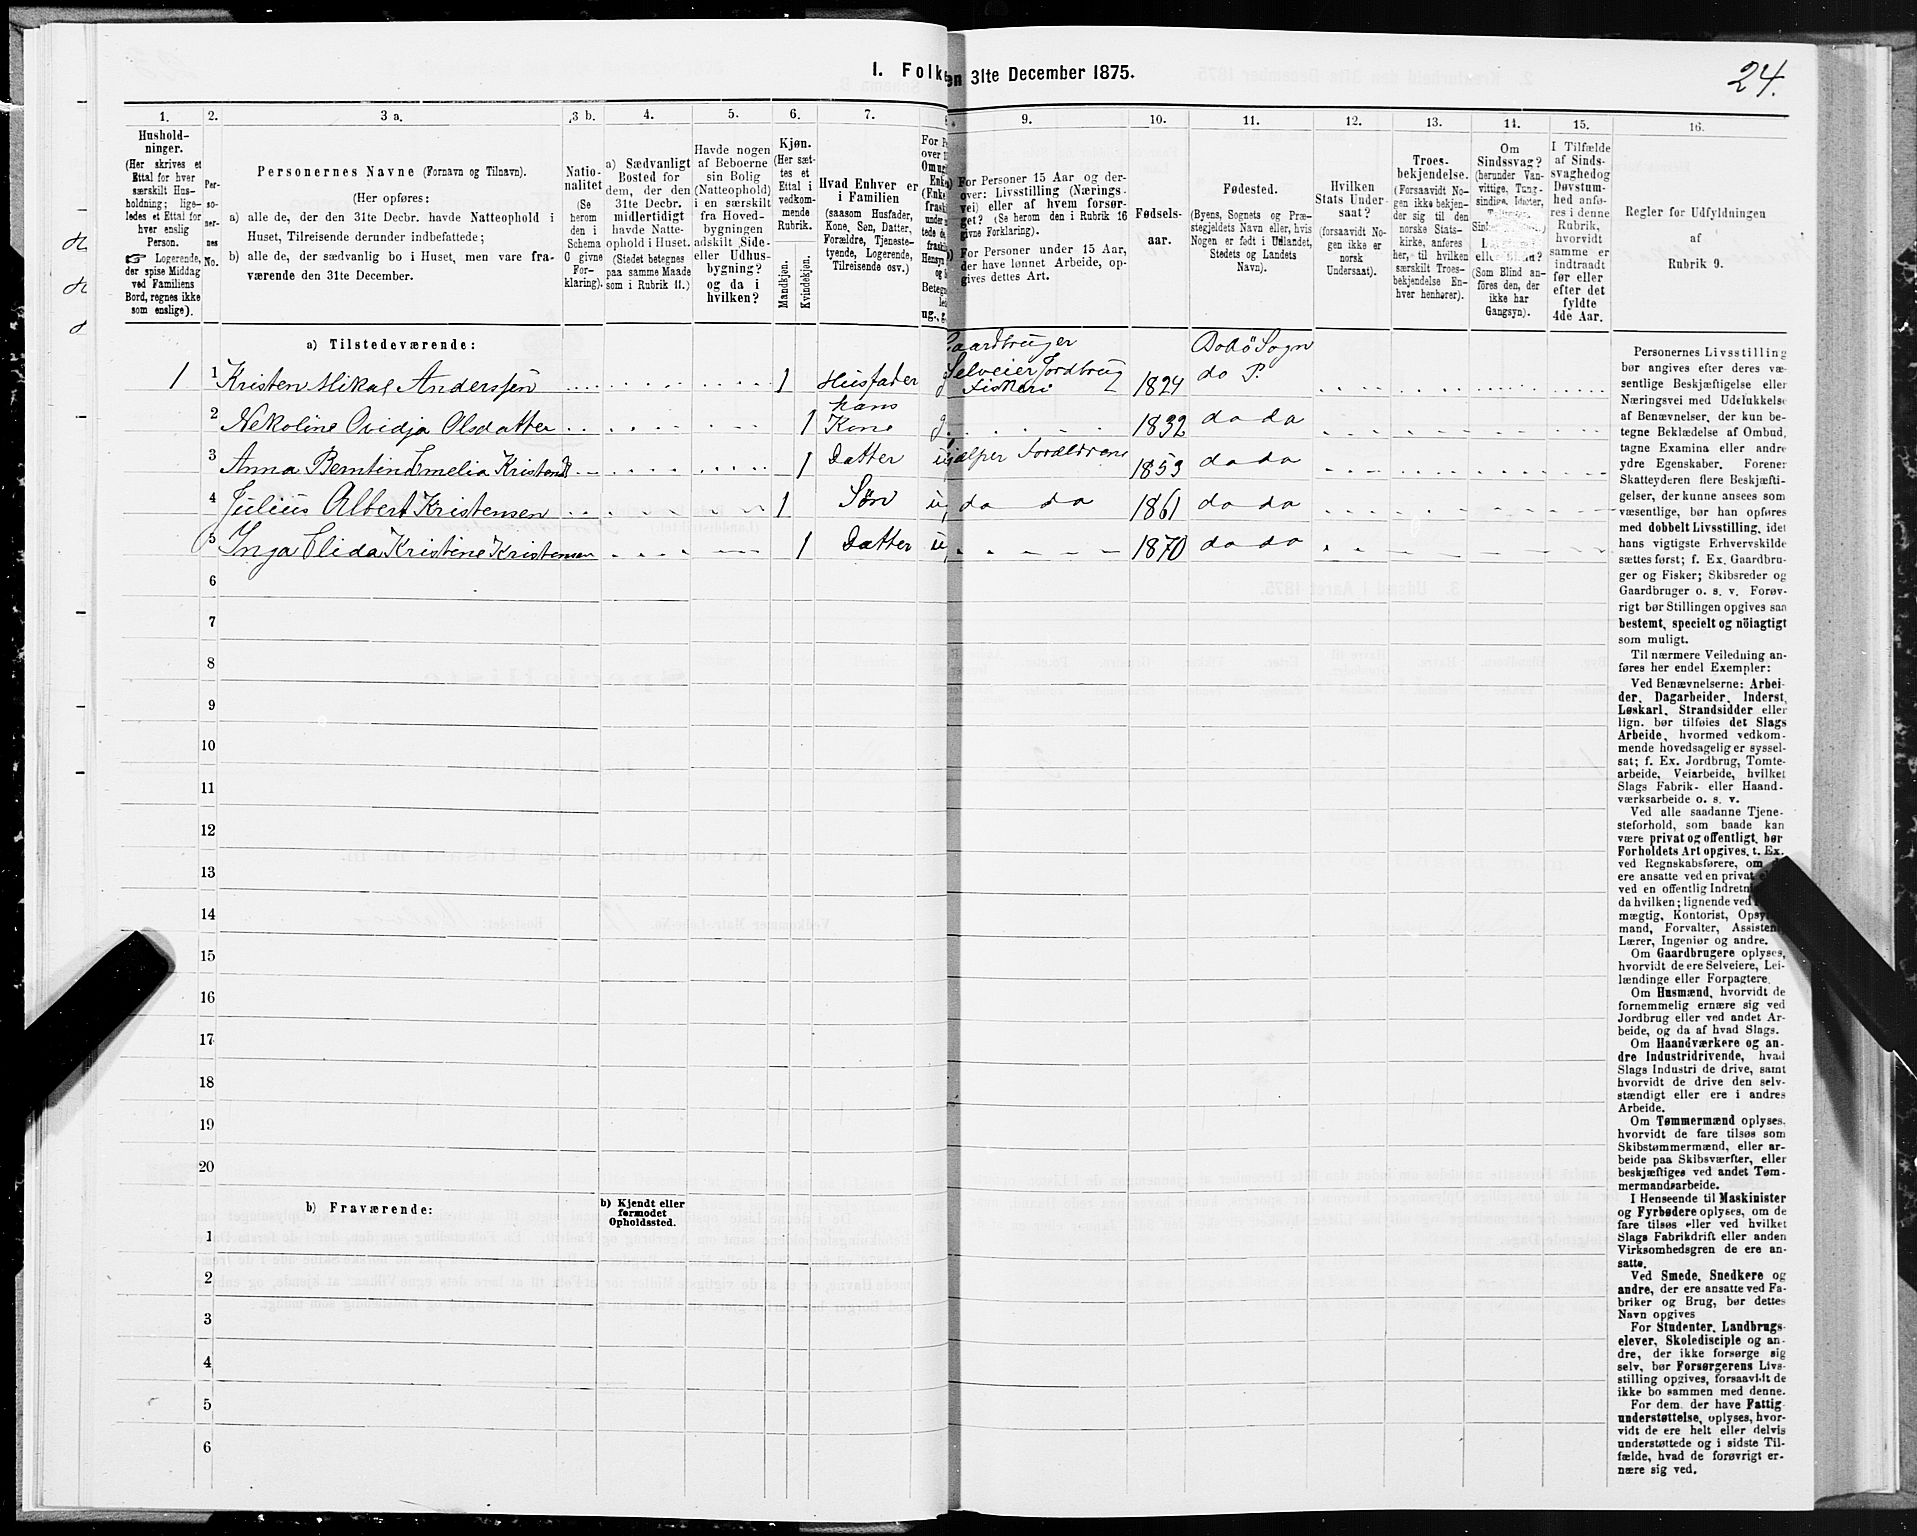 I. Folk en 31te December 1875.
24.
1.
Hushold-
ninger.
(Her skrives et
Ettal for hver
særskilt Hus-
holdning; lige-
ledes et Ettal for
hver enslig
Person.
☞ Logerende,
der spise Middag
ved Familiens
Bord, regnes ikke
som enslige).
2.
Per-
so-
ner-
nes
No.
3 a.
Personernes Navne (Fornavn og Tilnavn).
(Her opføres:
a) alle de, der den 31te Decbr. havde Natteophold i
Huset, Tilreisende derunder indbefattede;
b) alle de, der sædvanlig bo i Huset, men vare fra-
værende den 31te December.
3 b.
Natio-
nalitet
(Se
herom
den i
Schema
C givne
For-
klaring).
4.
a) Sædvanligt
Bosted for
dem, der den
31te Decbr.
midlertidigt
havde Natte-
ophold i Huset.
(Stedet betegnes
paa samme Maade
som i Rubrik 11.)
5.
Havde nogen
af Beboerne
sin Bolig
(Natteophold)
i en særskilt
fra Hoved-
bygningen
adskilt Side-
eller Udhus-
bygning?
og da i
hvilken?
6.
Kjøn.
(Her sæt-
tes et
Ettal i
vedkom-
mende
Rubrik.
Mandkjøn.
Kvindekjøn.
7.
Hvad Enhver er
i Familien
(saasom Husfader,
Kone, Søn, Datter,
Forældre, Tjeneste-
tyende, Logerende,
Tilreisende osv.)
For P
over
Omugi
Enke
(Enke
fraski
under
tede
Hensyn
og
Betegn
ug., g.
9.
For Personer 15 Aar og der-
over: Livsstilling (Nærings-
vei) eller af hvem forsør-
get? (Se herom den i Rubrik 16
givne Forklaring).
For Personer under 15 Aar,
der have lønnet Arbeide, op-
gives dettes Art.
10.
Fødsels-
aar.
11.
Fødested.
(Byens, Sognets og Præ-
stegjeldets Navn eller, hvis
Nogen er født i Udlandet,
Stedets og Landets
Navn).
12.
Hvilken
Stats Under-
saat?
(forsaavidt No-
gen ikke er
norsk
Undersaat).
13.
Troes-
bekjendelse.
(Forsaavidt No-
gen ikke bekjen-
der sig til den
norske Stats-
kirke, anføres
her, til hvilken
særskilt Troes-
bekjendelse En-
hver henhører).
14.
Om
Sindssvag?
(herunder Van-
vittige, Tung-
sindige, Idioter,
(Som Blind an-
føres den, der
ikke har
Gangsyn).
15.
I Tilfælde
af Sinds-
svaghedog
Døvstum-
hed anfø-
res i denne
Rubrik,
hvorvidt
samme er
indtraadt
før eller
efter det
fyldte
4de Aar.
16.
Regler for Udfyldningen
af
Rubrik 9.
a) Tilstedeværende:
Gaardbruger Bodö Sogn
1 1 Kristen Mikal Anderssen 1 Husfader g Selveier Jordbrug Fiskeri 1824 do P.
2 Nekoline Ovidja Olsdatter 1 hans Kone g. 1832 do do
3 Anna Berntine Emelia Kristensd 1 Datter u hjælper Forældrene 1853 do do
4 Julius Albert Kristensen 1 Sön u, do do 1861 do do
5 Inga Elida Kristine Kristensen 1 Datter u, 1870 do do
6
7
8
9
10
11
12
13
14
15
16
17
18
19
20
b) Fraværende:
b) Kjendt eller
formodet
Opholdssted.
1
2
3
4
5
6
Personernes Livsstilling
bør angives efter deres væ-
sentlige Beskjæftigelse eller
Næringsvei med Udelukkelse
af Benævnelser, der kun be-
tegne Beklædelse af Ombud,
tagne Examina eller andre
ydre Egenskaber. Forener
Skatteyderen flere Beskjæfti-
gelser, der kunne ansees som
væsentlige, bør han opføres
med dobbelt Livsstilling, idet
hans vigtigste Erhvervskilde
sættes først; f. Ex. Gaardbru-
ger og Fisker; Skibsreder og
Gaardbruger o. s. v. Forøv-
rigt bør Stillingen opgives saa
bestemt, specielt og nöiagtigt
som muligt.
Til nærmere Veiledning an-
føres her endel Exempler:
Ved Benævnelserne: Arbei-
der, Dagarbeider, Inderst,
Løskarl, Strandsidder eller
lign. bør tilføies det Slags
Arbeide, hvormed vedkom-
mende hovedsagelig er syssel-
sat; f. Ex. Jordbrug, Tomte-
arbeide, Veiarbeide, hvilket
Slags Fabrik- eller Haand-
værksarbeide o. s. v.
Ved alle saadanne Tjene-
steforhold, som baade kan
være privat og offentligt, bør
Forholdets Art opgives, t. Ex.
ved Regnskabsførere, om
ere ansatte ved en privat
ved en offentlig Indretni
da hvilken; lignende ved
mægtig, Kontorist, Opsy
mand, Forvalter, Assistent
Lærer, Ingeniør og andre.
Om Gaardbrugere oplyses,
hvorvidt de ere Selveiere, Lei-
lændinge eller Forpagtere.
Om Husmænd, hvorvidt de
fornemmelig ernære sig ved
Jordbrug eller ved andet Ar-
beide, og da af hvad Slags.
Om Haandværkere og an-
dre Industridrivende, hvad
Slags Industri de drive, samt
hvorvidt de drive den selv-
stændigt eller ere i andres
Arbeide.
Om Tømmermænd oplyses,
hvorvidt de fare tilsøs som
Skibstømmermænd, eller ar-
beide paa Skibsværfter, eller
beskjæftiges ved andet Tøm-
mermandsarbeide.
I Henseende til Maskinister
og Fyrbødere oplyses, om de
fare tilsøs eller ved hvilket
Slags Fabrikdrift eller anden
Virksomhedsgren de ere an-
satte.
Ved Smede, Snedkere og
andre, der ere ansatte ved Fa-
briker og Brug, bør dettes
Navn opgives
For Studenter, Landbrugs-
elever, Skoledisciple og an-
dre, der ikke forsørge sig
selv, bør Forsørgerens Livs-
stilling opgives, forsaavidt de
ikke bo sammen med denne.
For dem, der have Fattig-
understøttelse, oplyses, hvor-
vidt de ere helt eller delvis
understøttede og i sidste Til-
fælde, hvad de forøvrigt er-
nære sig ved.